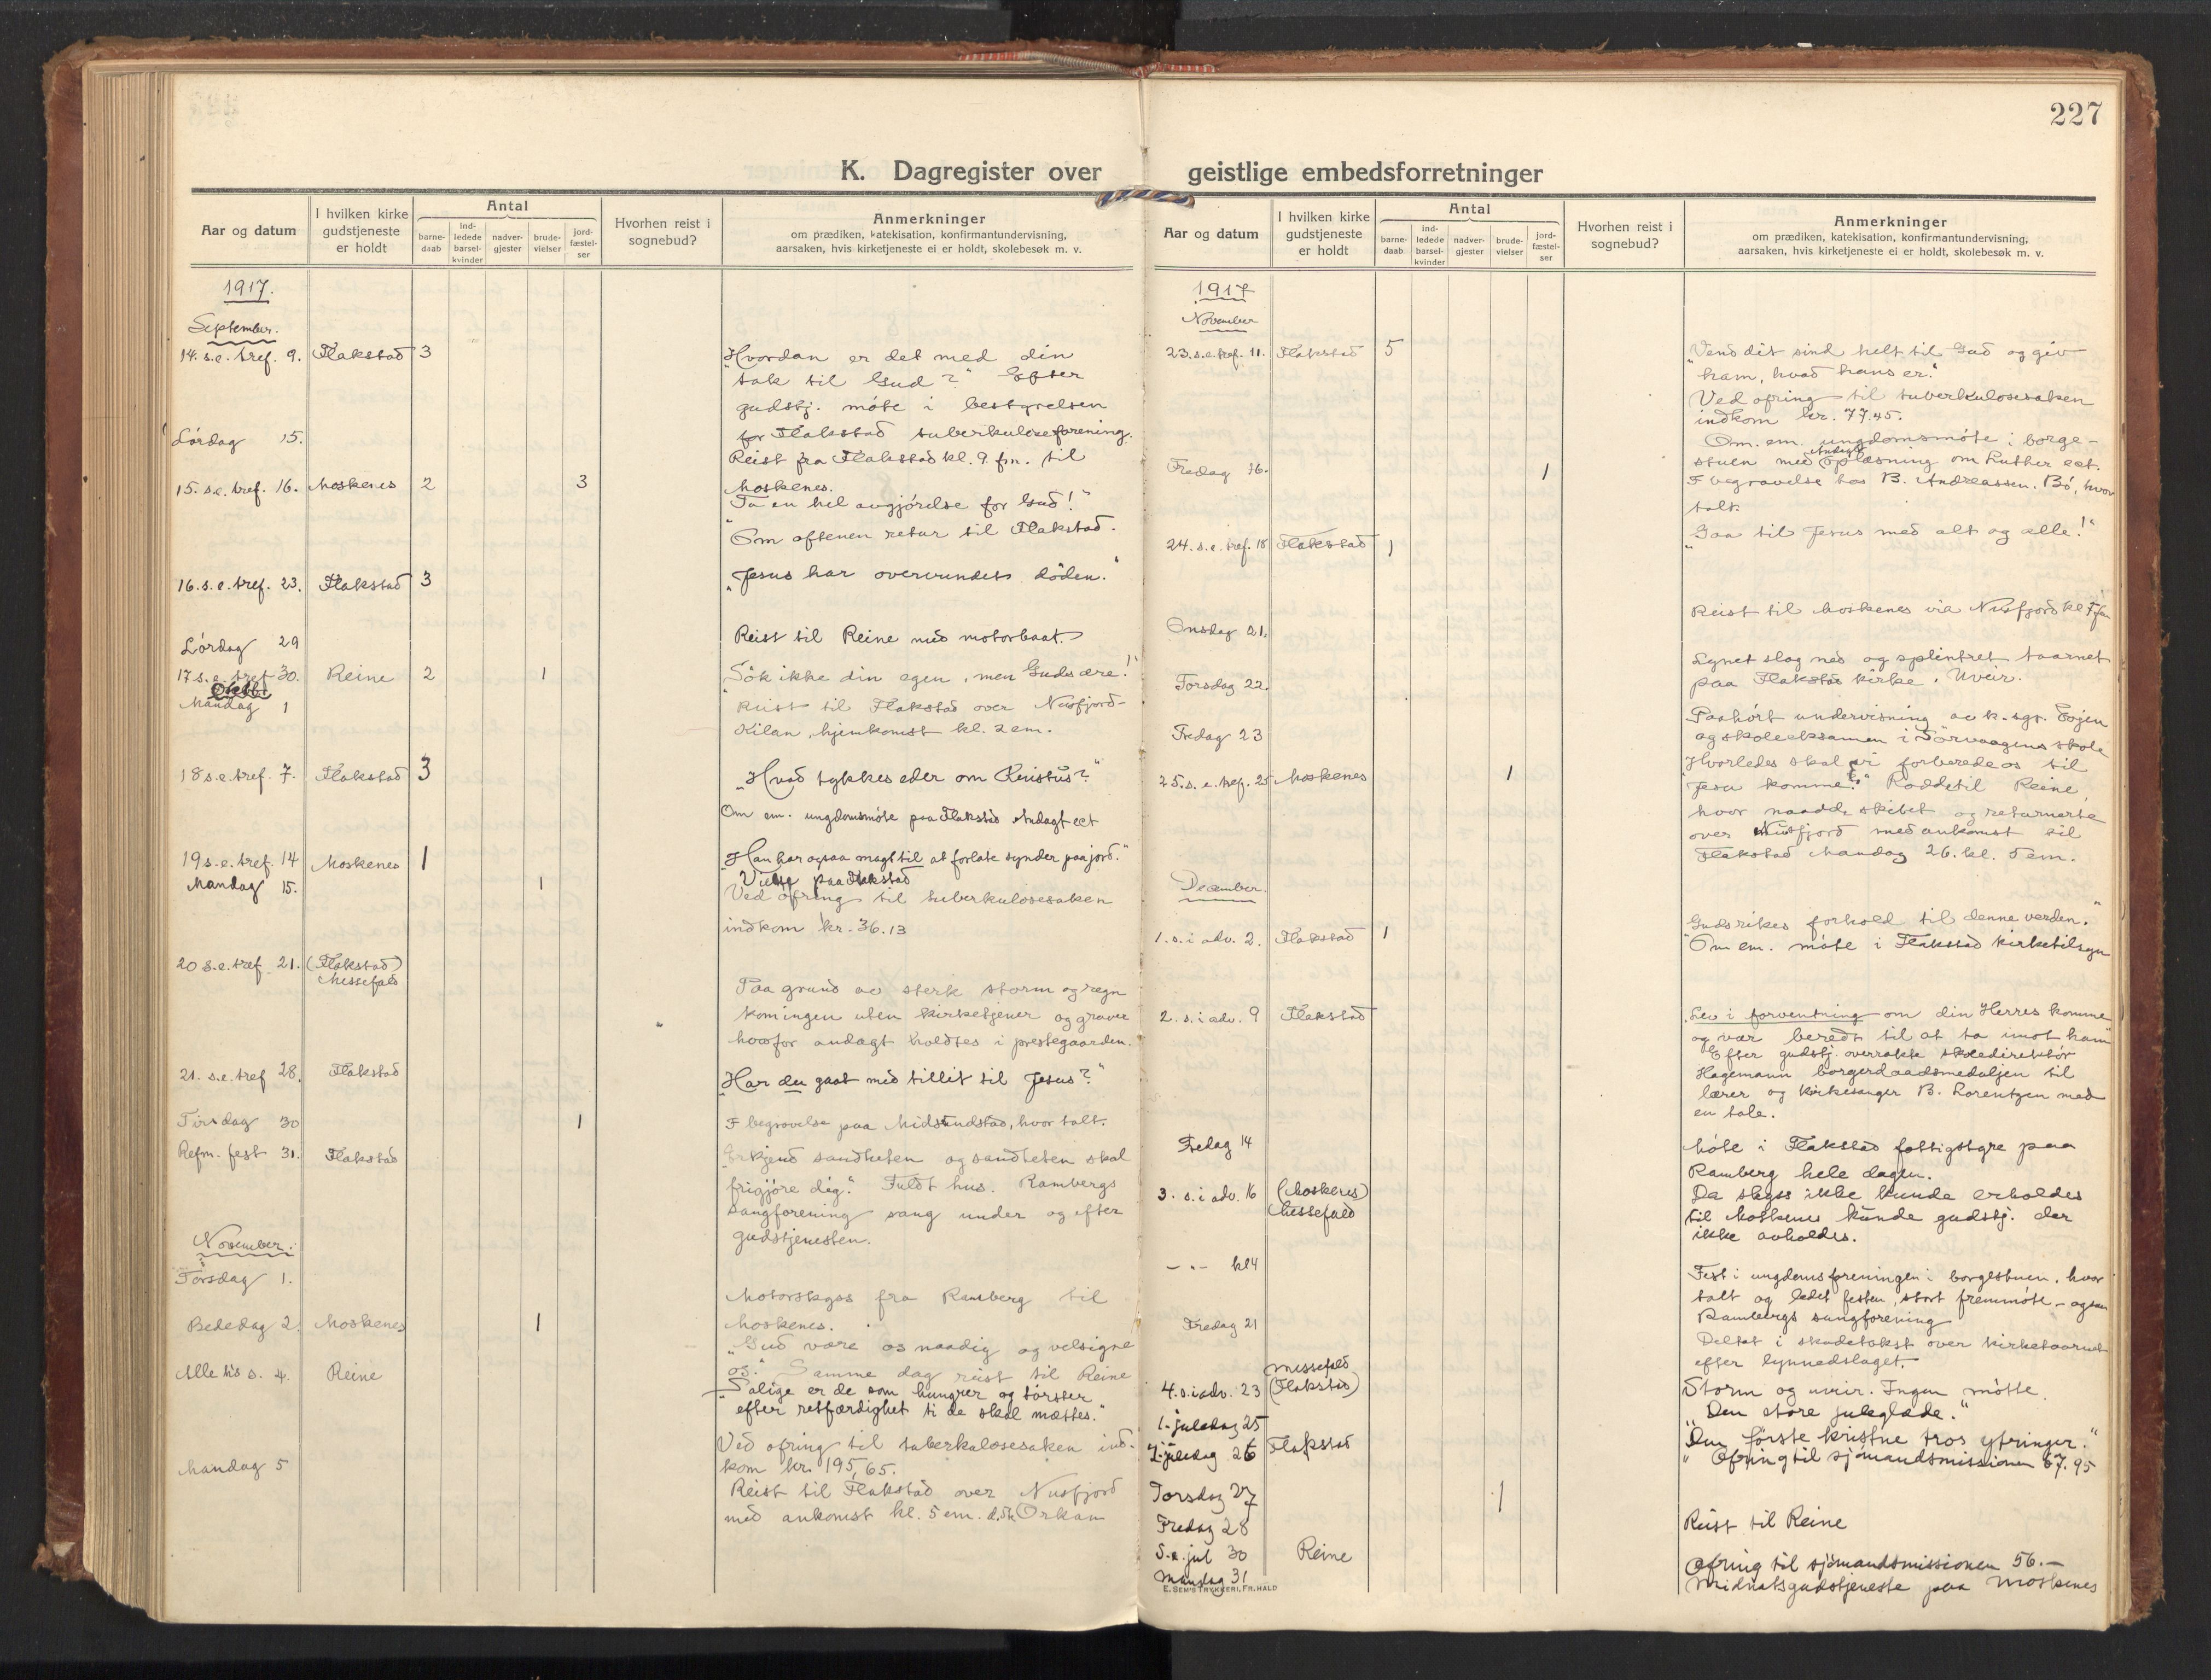 227
K. Dagregister over geistlige embedsforretninger
Aar og datum
I hvilken kirke gudstjeneste er holdt
Antal
barne-daab
ind-ledede barsel-kvinder
nadver-gjester
brude-vielser
jord-fæstel-ser
Hvorhen reist i sognebud?
Anmerkninger
om prædiken, katekisation, konfirmantundervisning,
aarsaken, hvis kirketjeneste ei er holdt, skolebesøk m. v.
1917.
September.
14. s.e. tref. 9. Flakstad 3
"Hvordan er det med din
tak til Gud?" Efter
gudstj. møte i bestyrelsen
for Flakstad tuberkuloseforening.
Lørdag 15.
Reist fra Flakstad kl. 9 fm. til
Moskenes.
15. s.e. tref. 16. Moskenes 2 3
"Ta en hel avgjørelse for Gud!"
Om aftenen retur til Flakstad.
16. s.e. tref. 23. Flakstad 3
"Jesus har overvundet døden."
Lørdag 29
Reist til Reine med motorbaat.
17 s.e. tref 30. Reine 2 1
"Søk ikke din egen, men Guds ære!"
Oktb.
Mandag 1
Reist til Flakstad over Nusfjord-
Kilan, hjemkomst kl. 2 em.
18 s.e. tref. 7. Flakstad 3
"Hvad tykkes eder om Kristus?"
Om em. ungdomsmøte paa Flakstad Andagt ect
19 s.e. tref. 14 Moskenes 1
"Han har ogsaa magt til at forlate synder paa jord."
Mandag 15. 1
Vielse paa Flakstad
Ved ofring til tuberkulosesaken
indkom kr. 36.13
20 s.e. tref. 21. (Flakstad)
Messefald
Paa grund av sterk storm og regn
kom ingen uten kirketjener og graver
hvorfor andagt holdtes i prestegaarden.
21. s.e. tref 28. Flakstad
"Har du gaat med tillit til Jesus?"
Tirsdag 30 1
I begravelse paa Midsundstad, hvor talt.
Refm. fest 31. Flakstad
"Erkjend sandheten og sandheten skal
frigjøre dig." Fuldt hus. Rambergs
sangforening sang under og efter
gudstjenesten.
November.
Torsdag 1.
Motorskyss fra Ramberg til
Moskenes.
Bededag 2. Moskenes 1
"Gud være os naadig og velsigne
os." Samme dag reist til Reine
Alle h's s. 4. Reine
"Salige er de som hungrer og tørster
efter retfærdighet ti de skal mættes."
Ved ofring til tuberkulosesaken ind-
kom kr. 195,65.
Mandag 5
Reist til Flakstad over Nusfjord
med ankomst kl. 5 em. Orkan
Aar og datum
I hvilken kirke gudstjeneste er holdt
Antal
barne-daab
ind-ledede barsel-kvinder
nadver-gjester
brude-vielser
jord-fæstel-ser
Hvorhen reist i sognebud?
Anmerkninger
om prædiken, katekisation, konfirmantundervisning,
aarsaken, hvis kirketjeneste ei er holdt, skolebesøk m. v.
1917
November
23. s.e. tref. 11. Flakstad 5
"Vend dit sind helt til Gud og giv
ham, hvad hans er."
Ved ofring til tuberkulosesaken
indkom kr. 77.45.
Om em. ungdomsmøte i borge-
stuen med Andagt Oplæsning om Luther ect.
Fredag 16. 1
I begravelse hos B. Andreassen, Bø, hvor
talt.
24. s.e. tref. 18 Flakstad 1
"Gaa til Jesus med alt og alle!"
Onsdag 21.
Reist til Moskenes via Nusfjord kl
Torsdag 22.
Lynet slog ned og splintret taarnet
paa Flakstad kirke. Uveir.
Fredag 23
Paahørt undervisning av k.sgr. Tojen
og skoleeksamen i Sørvaagens skole
25. s.e. tref. 25 Moskenes 1
"Hvorledes skal vi forberede os til
Jesu komme?" Rodde til Reine,
hvor naadde skibet og returnerte
over Nusfjord med ankomst til
Flakstad Mandag 26. kl. 5 em.
December.
1. s. i adv. 2. Flakstad 1
"Gudsrikes forhold til denne verden."
Om em. møte i Flakstad kirketilsyn
2. s. i adv. 9 Flakstad
"Lev i forventning om din Herres komme
og vær beredt til at ta imot ham"
Efter gudstj. overrakte skoledirektør
Hagemann borgerdaadsmedaljen til
lærer og kirkesanger B. Lorentzen med
en tale.
Fredag 14
Møte i Flakstad fattigstyre paa
Ramberg hele dagen.
3. s. i adv. 16 (Moskenes)
Messefald
Da skyss ikke kunde erholdes
til Moskenes kunde gudstj. der
ikke avholdes.
— " — kl 4
Fest i ungdomsforeningen i borgestuen, hvor
talt og ledet festen, stort fremmøte – ogsaa
Rambergs sangforening
Fredag 21
Deltat i skadetakst over kirketaarnet
efter lynnedslaget.
4. s. i adv. 23 Messefald
(Flakstad)
Storm og uveir. Ingen møtte.
1. juledag 25
"Den store juleglæde."
2. juledag 26 Flakstad
"Den første kristne tros ytringer."
Ofring til sjømandsmissionen 67.95
Torsdag 27 1
Fredag 28
Reist til Reine
S. e. jul 30 Reine
Ofring til sjømandsmissionen 56.—
Mandag 31
Midnatsgudstjeneste paa Moskenes
E. SEM'S TRYKKERI, FR.HALD